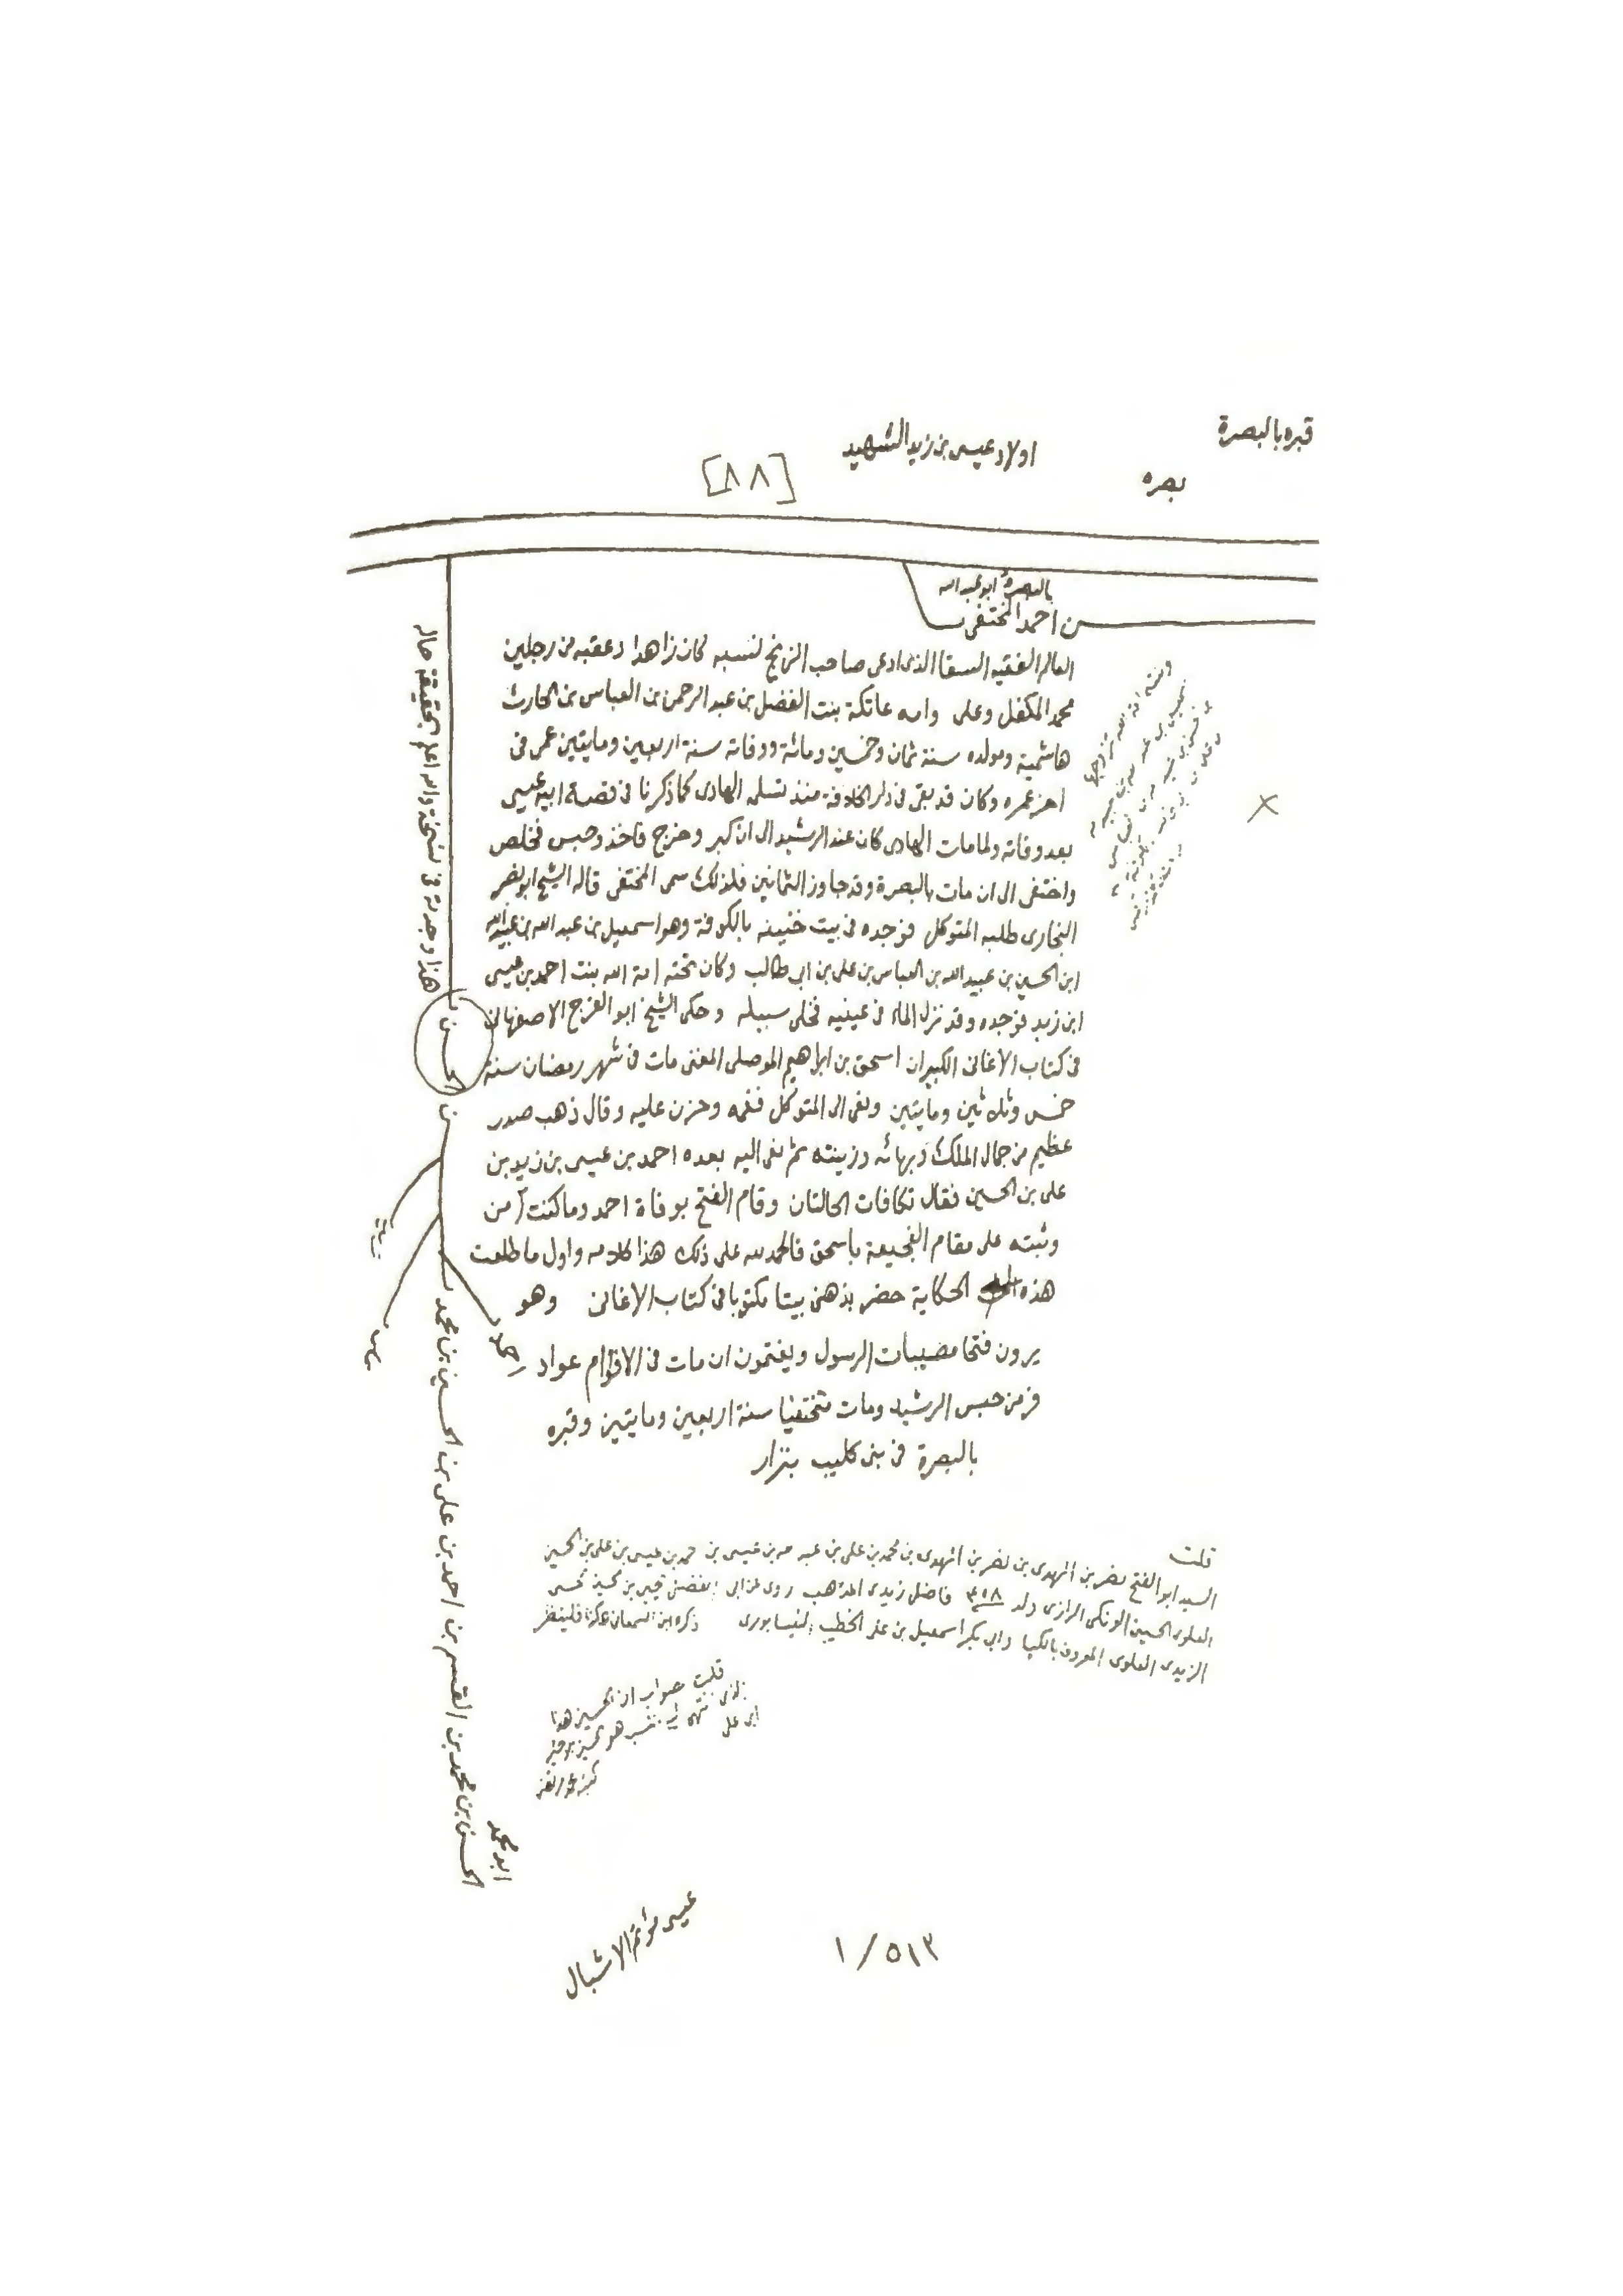 قبره بالبصرة
اولاد عيسى بن زيد الشهيد
بصره
[٨٨]
بالبصرة ابو عبد الله
بن احمد المختفى
العالم الفقيه السقا الذى ادعى صاحب الزنج لنسبه كان زاهدا وعقبه من رجلين
محمد المكفل وعلى وامه عاتكة بنت الفضل بن عبد الرحمن بن العباس بن الحارث
هاشمية ومولده سنة ثمان وخمسين ومائة ووفاته سنة اربعين ومايتين عمى فى
اخر عمره وكان قد بقى فى دار الخلافة منذ تسلمه الهادى كما ذكرنا فى قصة ابيه عيسى
بعد وفاته ولما مات الهادى كان عند الرشيد الى ان كبر وخرج فاخذ وحبس فخلص
واختفى الى ان مات بالبصرة وقد جاوز الثمانين فلذلك سمى المختفى قال الشيخ ابو نصر
البخارى طلبه المتوكل فوجده فى بيت ختنه بالكوفة وهو اسمعيل بن عبد الله بن عبيد الله
ابن الحسين بن عبيد الله بن العباس بن على بن ابى طالب وكان تحته امة الله بنت احمد بن عيسى
ابن زيد فوجده وقد نزل الماء فى عينيه فخلى سبيله وحكى الشيخ ابو الفرج الاصفهانى
فى كتاب الاغانى الكبير ان اسحق بن ابراهيم الموصلى المغنى مات فى شهر رمضان سنة
خمس وثلاثين ومايتين ونعى الى المتوكل فغمه وحزن عليه وقال ذهب صدر
عظيم من جمال الملك وبهائه وزينته ثم نعى اليه بعده احمد بن عيسى بن زيد بن
على بن الحسين فقال تكافات الحالتان وقام الفتح بوفاة احمد وما كنت آمن
وثبته على مقام الفجيعة باسحق فالحمد لله على ذلك هذا كلامه واول ما طلعت
هذه الحكاية حضر بذهنى بيتا مكتوبا فى كتاب الاغانى وهو
يرون فتحا مصيبات الرسول ويغتمون ان مات فى الاقوام عواد
فر من حبس الرشيد ومات متخفيا سنة اربعين ومايتين وقبره
بالبصرة فى بنى كليب يزار
هذا وجدته فى نسخة والله اعلم بحقيقة حاله
بن الحسن بن
احمد
الحسين بن محمد
الحسن بن محمد بن القسم بن احمد بن على بن
ابو محمد
قلت
السيد ابو الفتح نصر بن المهدى بن نصر بن المهدى بن محمد بن على بن عبد الله بن عيسى بن احمد بن عيسى بن على بن الحسين
العلوى الحسينى الونكى الرازى ولد ٣٥٨ فاضل زيدى المذهب روى عن ابى الفضل يحيى بن الحسين الحسنى
الزيدى العلوى المعروف بالكيا وابى بكر اسمعيل بن على الخطيب النيسابورى ذكره ابن السمعانى هكذا فلينظر
قلت صواب ان الحسين هذا
عيسى موتم الاشبال
١/٥١٣